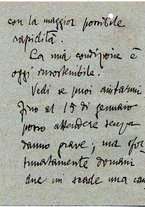 con la maggior possibile
rapidità.
La mia condizione è
oggi insostenibile!
Vedi se puoi aiutarmi
fino al 15 di gennaio
posso attendere senza
danno grave; ma
domani
mi scade una